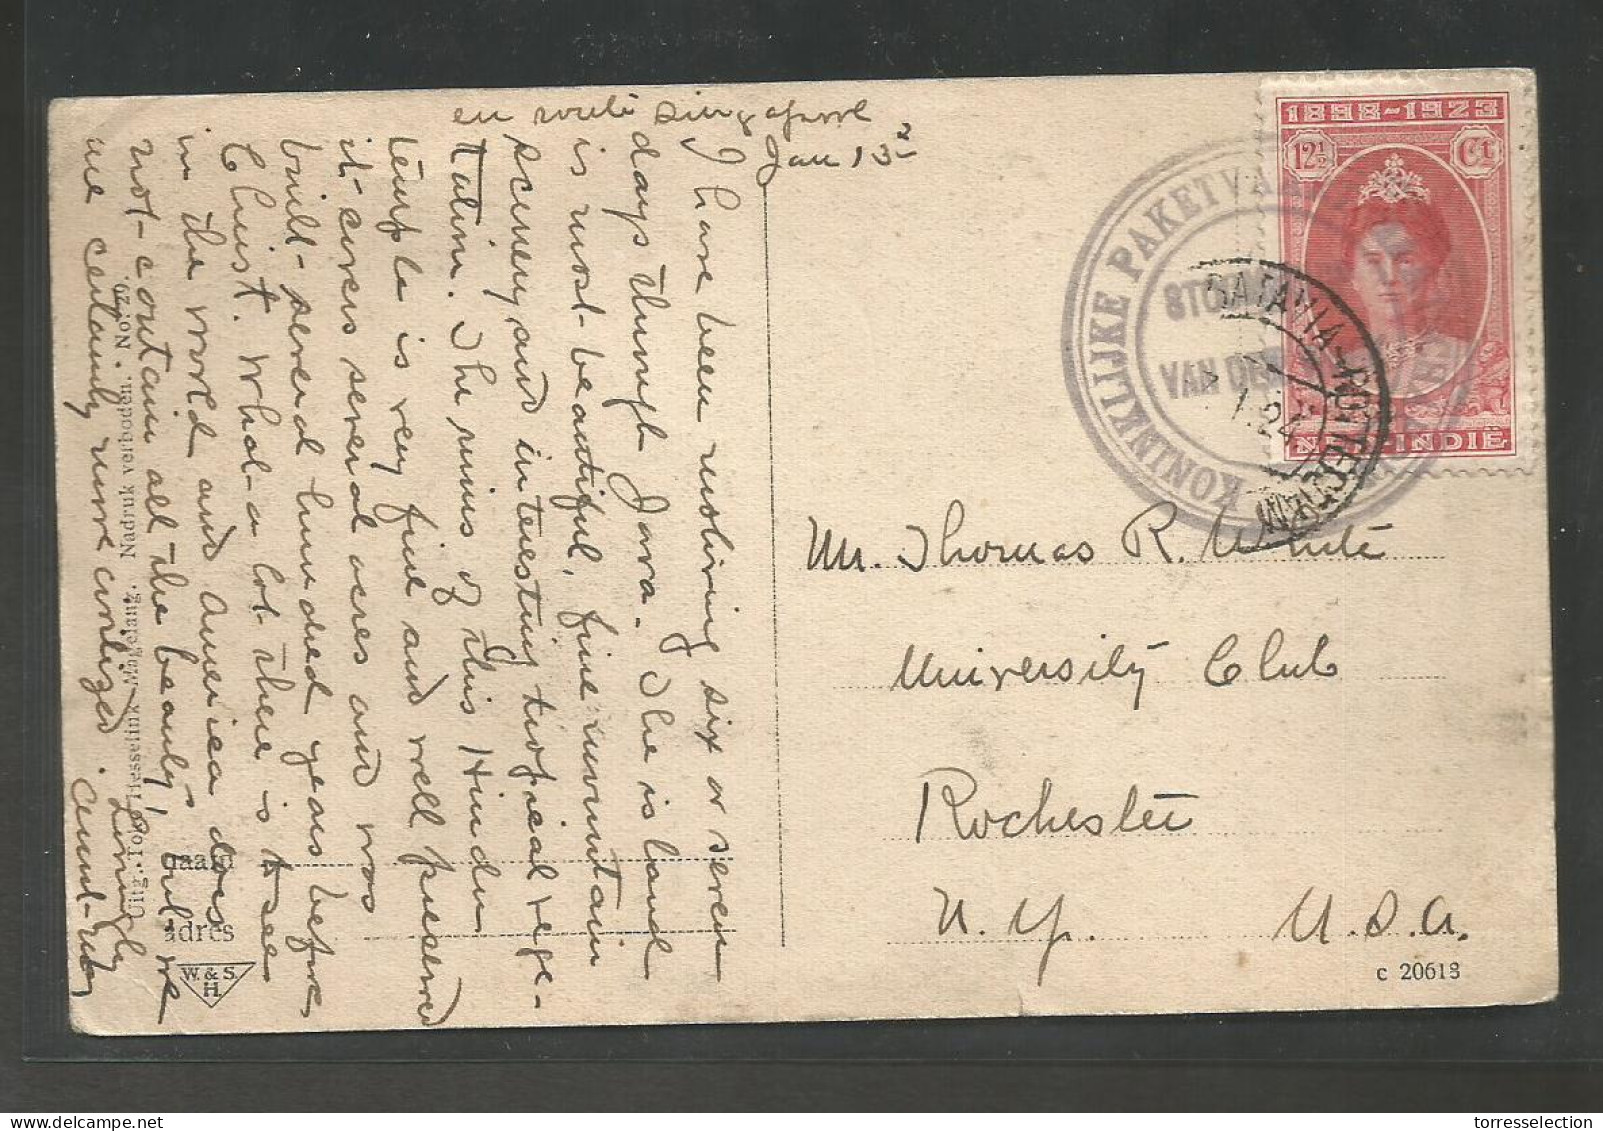 en route Singapore
Jan 13
I have been motoring six or seven
days through Java. The island
is most beautiful, fine mountain
scenery and interesting tropical vege-
tation. The ruins of this Hindu
temple is very fine and well preserved
it covers several acres and was
built several hundred years before
Christ. What a lot there is to see
in the world and America does
not contain all the beauty, but we
are certainly more civilized.
Uitg. Tolf Messelink Magelang. Nadruk verboden. No. 20.
naam
adres
W. & S.
H
1898-1923
12½ Ct
NED-INDIË
KONINKLIJKE PAKETVA
STOOM
VAN DEN
BATAVIA-ROTTERDAM
1.24
Mr. Thomas R. White
University Club
Rochester
N. Y. U.S.A.
c 20618
torresselection